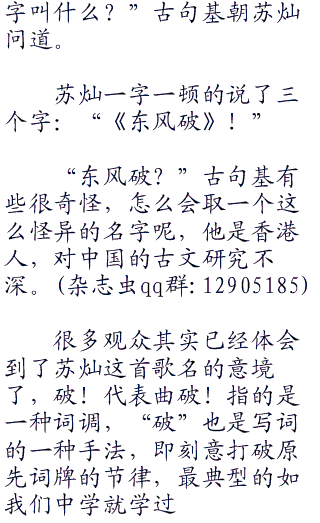 字叫什么？”古句基朝苏灿
问道。
苏灿一字一顿的说了三
个字：“《东风破》！”
“东风破？”古句基有
些很奇怪，怎么会取一个这
么怪异的名字呢，他是香港
人，对中国的古文研究不
深。(杂志虫qq群:12905185)
很多观众其实已经体会
到了苏灿这首歌名的意境
了，破！代表曲破！指的是
一种词调，“破”也是写词
的一种手法，即刻意打破原
先词牌的节律，最典型的如
我们中学就学过